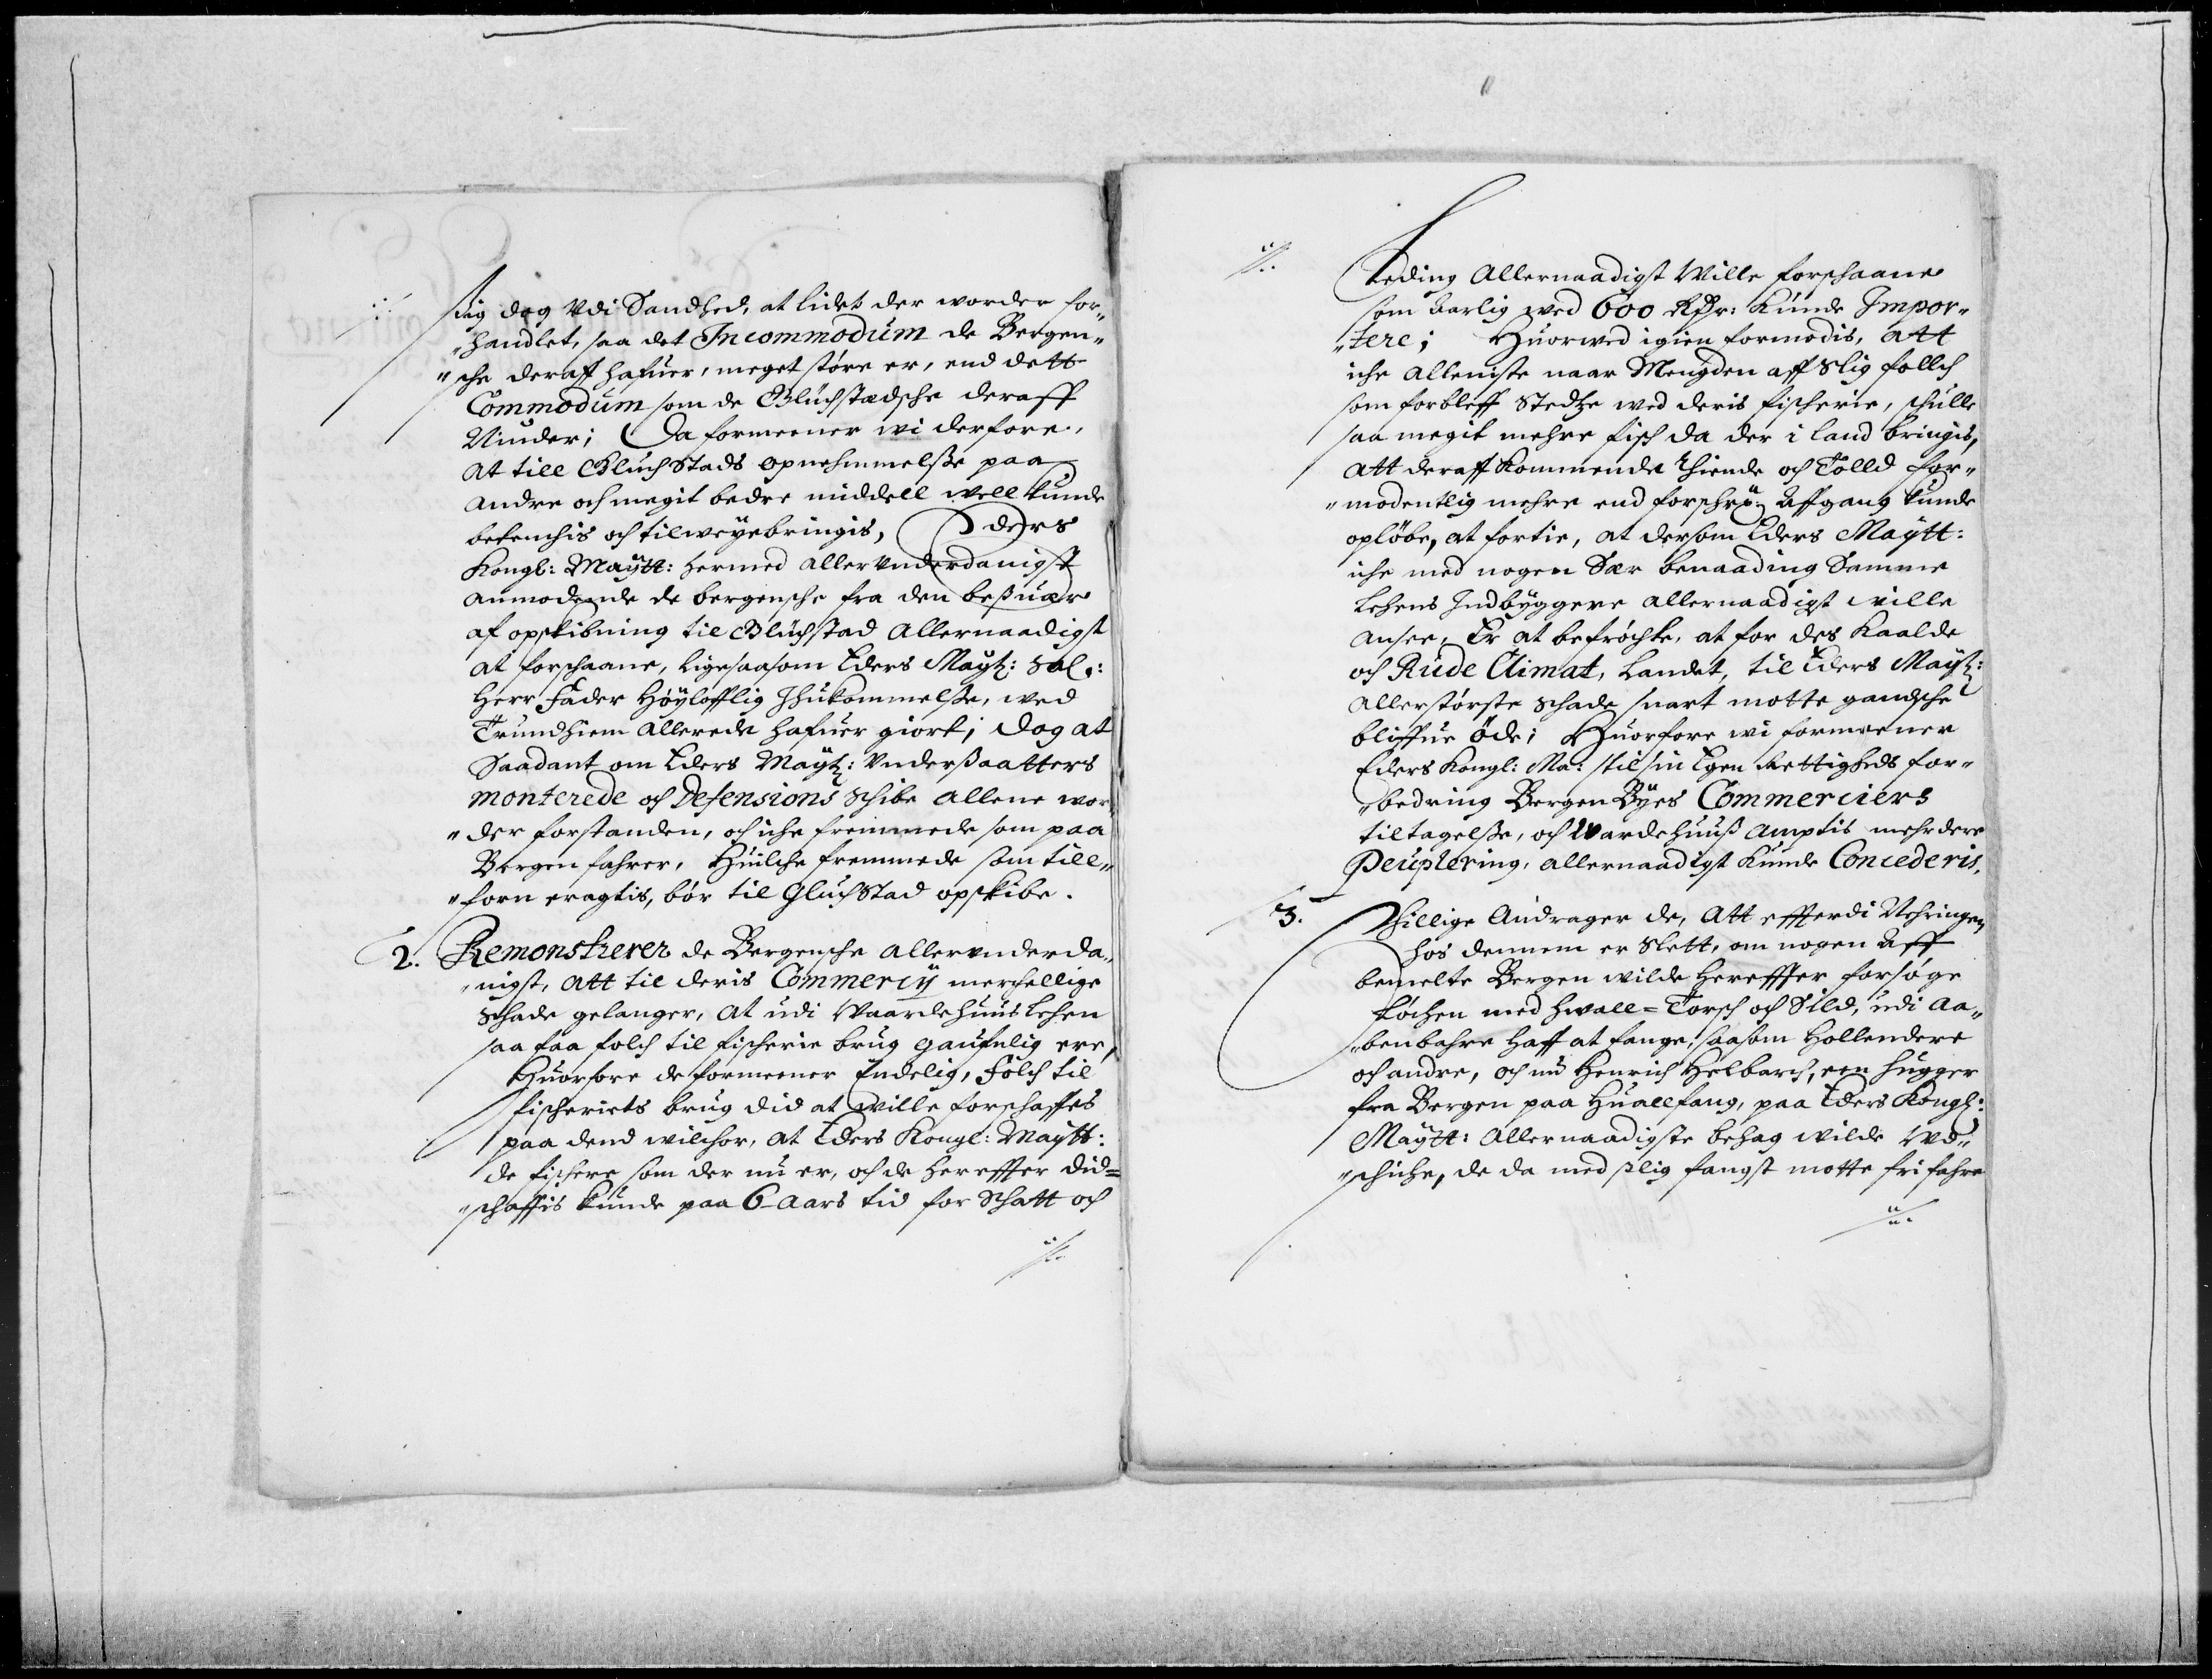 sig dog Vdi Sandhed, at lidet der worder for„
„handlet, saa det Incommodum de Bergen„
„sche deraff hafuer, meget større er, end dett
Commodum som de Glückstædsche deraff
Niuder; Da formeener wi derfore,
At till Glückstads opnehmmelsse paa
andre och megit bedre middell well kunde
betenchis och tilweyebringis, Eders
Kongl: Maÿtt: hermed allervnderdanigst
anmodende de bergensche fra den beßuær
af opskibning til Glückstad Allernaadigst
at forschaane, ligesaasom Eders Maÿtz: Sal:
Herr Fader Høÿlofflig Ihukommelsse, med
Trundhiem allerede hafuer giort; dog at
Saadant om Eders Maÿtz: Vnderßaatters
monterede och Defensions Schibe allene wor„
„der forstanden, och iche fremmede som paa
Bergen fahrer, Huilche fremmede som till„
„forn eragtis, bør til Gluckstad opskibe.
2. Remonstrerer de Bergensche allervnderda„
„nigst, Att til deris Commercij merchellige
Schade gelanger, At udi Waardehuus Lehen
saa faa folch til fischerie brug gaufnlig ere,
Huorfore de formeener Endelig, Folch til
fischeriets brug did at wille forschaffes
paa dend wilchor, at Eders Kongl: Maÿtt:
de fischere som der nu er, och de hereffter did=
„schaffis kunde paa 6 Aars tid for Schatt och
Leding Allernaadigst Wille forschaane
som Aarlig wed 600 Rdr: Kunde Impor„
„tere; Huorwed igien formodis, Att
iche Alleniste naar Mengden aff Slig follch
som forbleff Stedtze wed deris fischerie, schulle
saa megit mehre fisch da der i land bringis,
Att deraff kommende Thiende och Tolld for„
„modentlig mehre end forschr: Affgang kunde
opløbe, at fortie, at dersom Eders Maÿtt:
iche med nogen Sær benaading Samme
Lehens Indbÿggere allernaadigst wille
ansee, Er at befrøchte, at for des Kaalde
och Rude Climat, Landet, til Eders Maÿtz:
allerstørste Schade snart motte gandsche
bliffue øde; Huorfore wi formeener
Eders Kongl: Ma: til sin Egen Rettigheds for„
„bedring Bergen Bÿes Commerciers
tiltagelsse, och Wardehuuß Amptis mehrdere
Peuplering, allernaadigst Kunde Concederis.
3. Thillige Andrager de, Att effterdi Nehringen
hos dennem er Slett, om nogen Aff
bemelte Bergen wilde hereffter forsøge
løchen med hwall= Torsch och Sild, udi Aa„
„benbahre haff at fange, saasom Hollendere
och andre, och nu Henrich Helbarch, een hugger
fra Bergen paa Huallfang, paa Eders Kongl:
Maÿtt: Allernaadigste behag wilde Wd„
„schiche, de da med slig fangst motte fri fahre